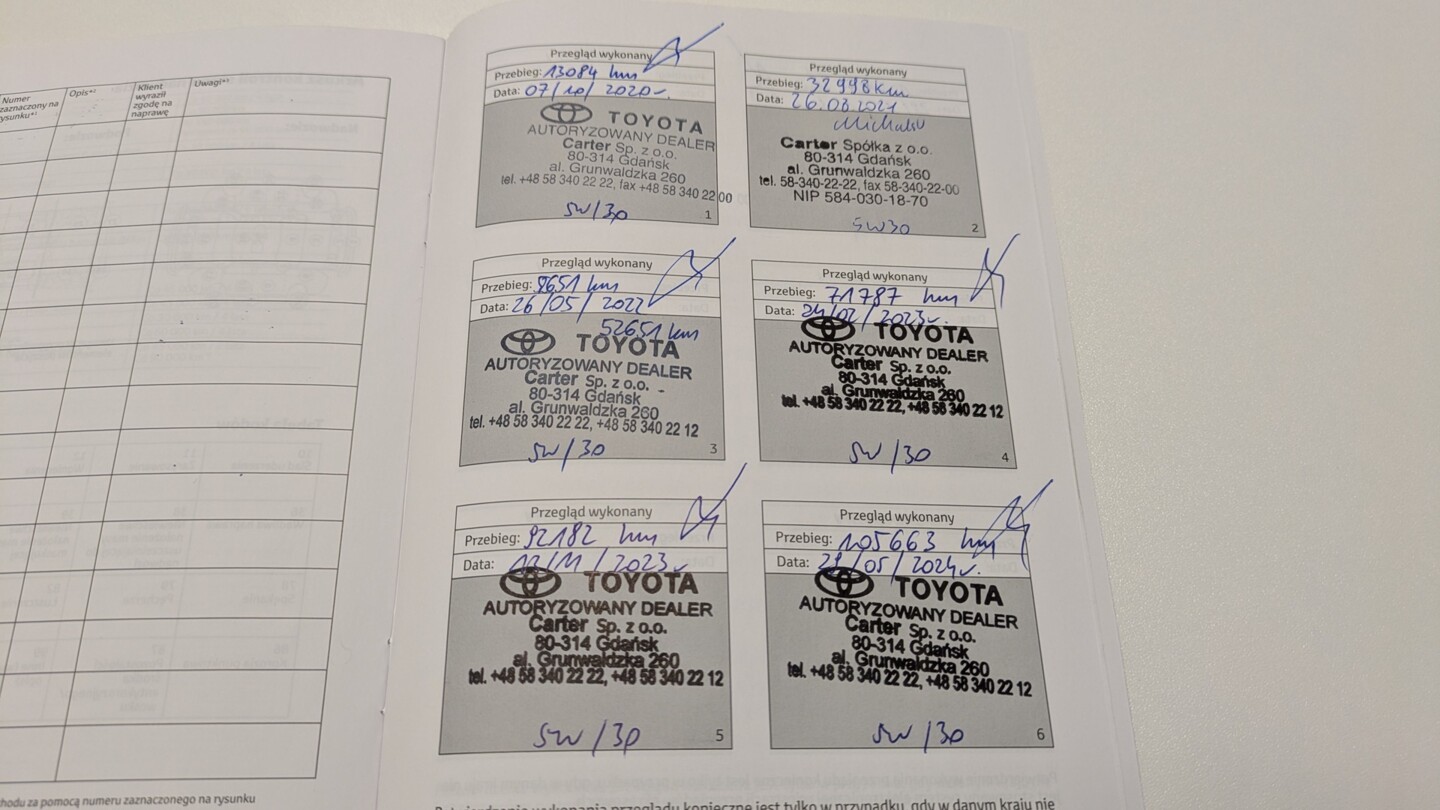 Numer
zaznaczony na
rysunku*¹
Opis*²
Klient
wyraził
zgodę na
naprawę
Uwagi*³
chodu za pomocą numeru zaznaczonego na rysunku
Przegląd wykonany
Przebieg: 13084 km
Data: 07/10/2020r.
TOYOTA
AUTORYZOWANY DEALER
Carter Sp. z o.o.
80-314 Gdańsk
al. Grunwaldzka 260
tel. +48 58 340 22 22, fax +48 58 340 22 00
5W/30
1
Przegląd wykonany
Przebieg: 32998km
Data: 26.08.2021
Carter Spółka z o.o.
80-314 Gdańsk
al. Grunwaldzka 260
tel. 58-340-22-22, fax 58-340-22-00
NIP 584-030-18-70
5W30
2
Przegląd wykonany
Przebieg: 9651 km
Data: 26/05/2022
52651 km
TOYOTA
AUTORYZOWANY DEALER
Carter Sp. z o.o.
80-314 Gdańsk
al. Grunwaldzka 260
tel. +48 58 340 22 22, +48 58 340 22 12
5W/30
3
Przegląd wykonany
Przebieg: 71787 km
Data: /02/2023r.
TOYOTA
AUTORYZOWANY DEALER
Carter Sp. z o.o.
80-314 Gdańsk
al. Grunwaldzka 260
tel. +48 58 340 22 22, +48 58 340 22 12
5W/30
4
Przegląd wykonany
Przebieg: 92182 km
Data: /11/2023r
TOYOTA
AUTORYZOWANY DEALER
Carter Sp. z o.o.
80-314 Gdańsk
al. Grunwaldzka 260
tel. +48 58 340 22 22, +48 58 340 22 12
5W/30
5
Przegląd wykonany
Przebieg: 105663 km
Data: /05/2024r.
TOYOTA
AUTORYZOWANY DEALER
Carter Sp. z o.o.
80-314 Gdańsk
al. Grunwaldzka 260
tel. +48 58 340 22 22, +48 58 340 22 12
5W/30
6
Potwierdzenie wykonania przeglądu konieczne jest tylko w przypadku, gdy w danym kraju nie